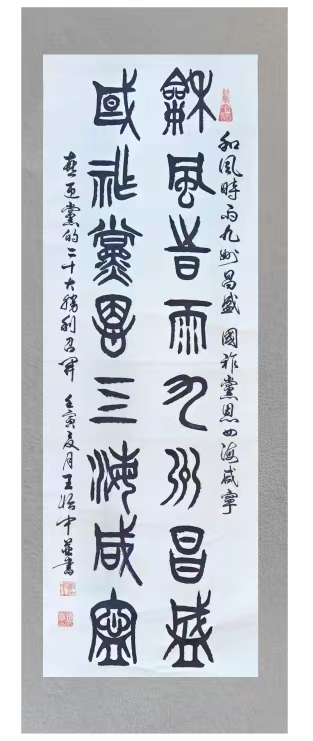 和風時雨九州昌盛 國祚黨恩四海咸寧
龢風旹雨九州昌盛
國祚黨恩亖海咸寧
喜迎黨的二十大勝利召開 壬寅夏月王中並書